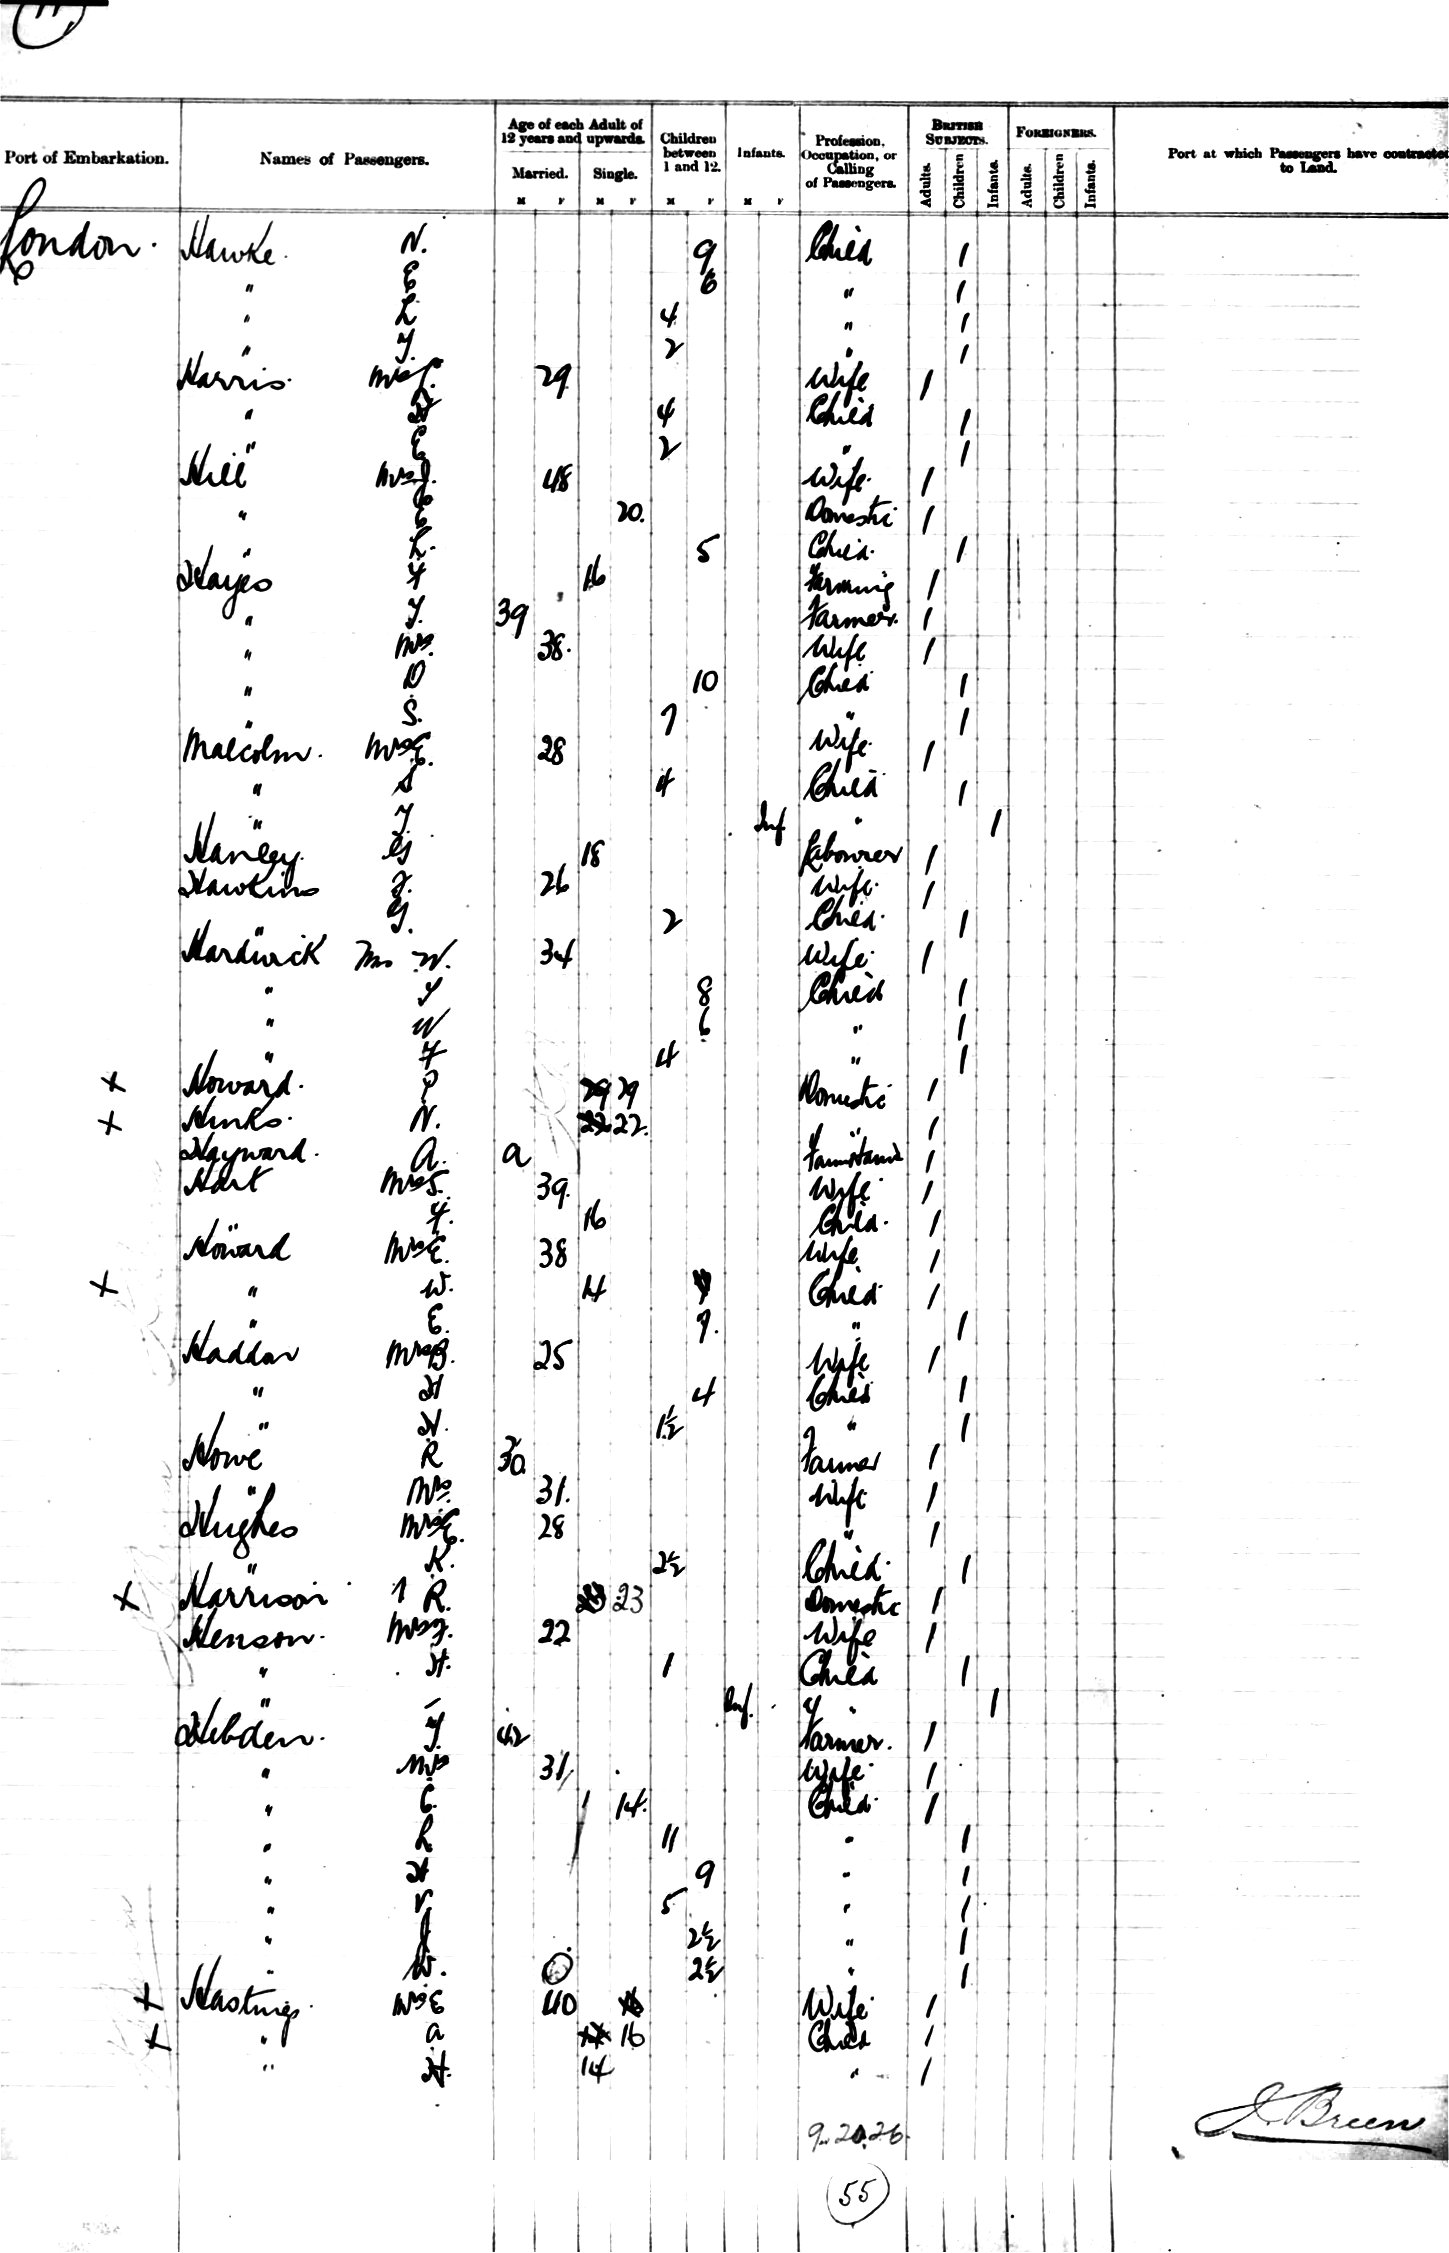 Age of each Adult of 12 years and upwards.
Children between 1 and 12.
Infants.
Profession, Occupation, or Calling of Passengers.
BRITISH SUBJECTS.
FOREIGNERS.
Port of Embarkation. Names of Passengers. Port at which Passengers have contracted to Land.
Married. Single. Adults. Children Infants. Adults. Children Infants.
M F M F M F M F
London. Hawke. N. 9 Child 1
" E 6 " 1
" L 4 " 1
" J. 2 " 1
Harris. Mrs 29 Wife 1
" H 4 Child 1
" E 2 " 1
Hill Mrs J. 48 Wife. 1
" E 20. Domestic 1
" L. 5 Child. 1
Hayes F 16 Farming 1
" J. 39 Farmer. 1
" Mrs. 38. Wife 1
" D 10 Child 1
" S. 7 " 1
Malcolm. Mrs E. 28 Wife. 1
" S 4 Child 1
" J Inf " 1
Hanley. G 18 Labourer 1
Hawkins J. 26 Wife. 1
" G. 2 Child. 1
Hardwick Mrs W. 34 Wife. 1
" J 8 Child 1
" W 6 " 1
" F 4 " 1
+ Howard. P 29 29 Domestic 1
+ Hinks. N. 22 22. " 1
Hayward. A. a 1
Hart Mrs S. 39. Wife 1
" F. 16 Child. 1
Howard Mrs E. 38 Wife 1
+ " W. 14 Child 1
" E. 9. " 1
Haddon Mrs B. 25 Wife 1
" H 4 Child 1
" H. 1½ " 1
Howe R 30 Farmer 1
" Mrs. 31. Wife 1
Hughes Mrs E. 28 " 1
" K. 2½ Child. 1
+ Harrison 1 R. 23 23 Domestic 1
Henson. Mrs J. 22 Wife 1
" H. 1 Child 1
" – Inf. " 1
Hebden. J. 42 Farmer. 1
" Mrs 31 Wife. 1
" C. 14. Child. 1
" L 11 " 1
" H 9 " 1
" V 5 " 1
" J 2½ " 1
" W. 2½ " 1
+ Hastings. Mrs E 40 16 Wife 1
+ " A 14 16 Child 1
" H. 14 " 1
J. Breen
9. 20. 26.
55